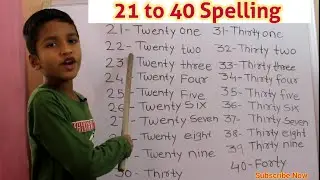 21 to 40 Spelling
21- Twenty one 31- Thirty one
22- Twenty two 32- Thirty two
23 Twenty three 33- Thirty three
24 Twenty Four 34- Thirty four
25 Twenty Five 35- Thirty Five
26 Twenty Six 36- Thirty Six
Twenty Seven 37- Thirty Seven
Twenty eight 38- Thirty eight
Twenty nine 39. Thirty nine
30 - Thirty 40- Forty
Subscribe Now